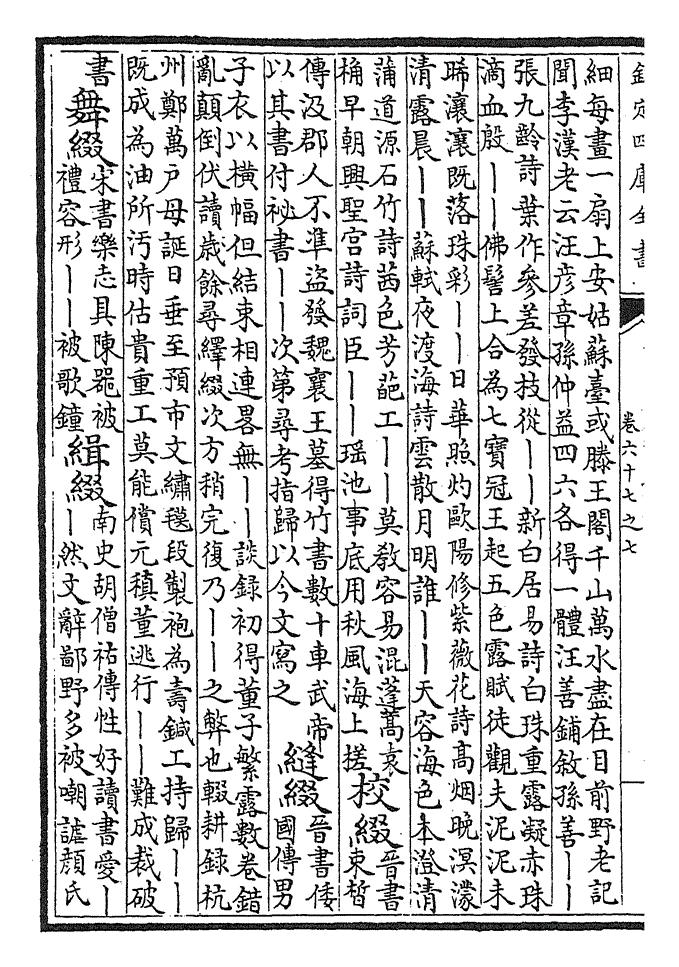 欽定四庫全書 卷六十七之七
細每畫一扇上安姑蘇臺或滕王閣千山萬水盡在目前野老記
聞李漢老云汪彦章孫仲益四六各得一體汪善鋪敘孫善丨丨
張九齡詩葉作參差發技從丨丨新白居易詩白珠重露凝赤珠
滴血殷丨丨佛髻上合為七寶冠王起五色露賦徒觀夫泥泥未
晞瀼瀼既落珠彩丨丨日華照灼歐陽修紫薇花詩高烟晚溟濛
清露晨丨丨蘇軾夜渡海詩雲散月明誰丨丨天容海色本澄清
蒲道源石竹詩茜色芳葩工丨丨莫敎容易混蓬蒿袁
桷早朝興聖宫詩詞臣丨丨瑶池事底用秋風海上槎
校綴
晉書
束皙
傳汲郡人不準盜發魏襄王墓得竹書數十車武帝
以其書付祕書丨丨次第尋考指歸以今文寫之
縫綴
晉書倭
國傳男
子衣以横幅但結束相連畧無丨丨談録初得董子繁露數卷錯
亂顛倒伏讀歲餘尋繹綴次方稍完復乃丨丨之弊也輟耕録杭
州鄭萬戸母誕日垂至預市文繡毯段製袍為壽鍼工持歸丨丨
既成為油所汚時估貴重工莫能償元稹董逃行丨丨難成裁破
書
舞綴
宋書樂志具陳器被
禮容形丨丨被歌鐘
緝綴
南史胡僧祐傳性好讀書愛丨
丨然文辭鄙野多被嘲謔顔氏